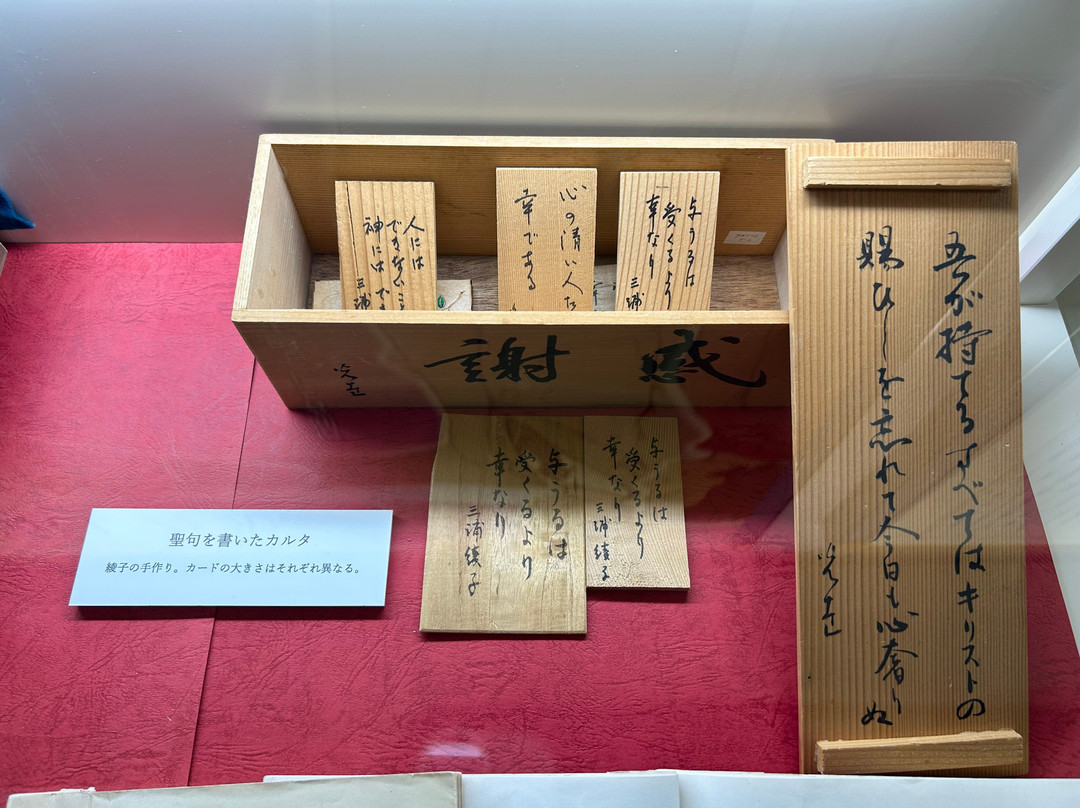 人には
できないこ
神にはでき
三浦
心の清い人た
幸である
与うるは
受くるより
幸なり
三浦
感謝
光世
吾が持てるすべてはキリストの
賜ひしを忘れて今日も心奢りぬ
光世
与うるは
受くるより
幸なり
三浦綾子
与うるは
受くるより
幸なり
三浦綾子
聖句を書いたカルタ
綾子の手作り。カードの大きさはそれぞれ異なる。